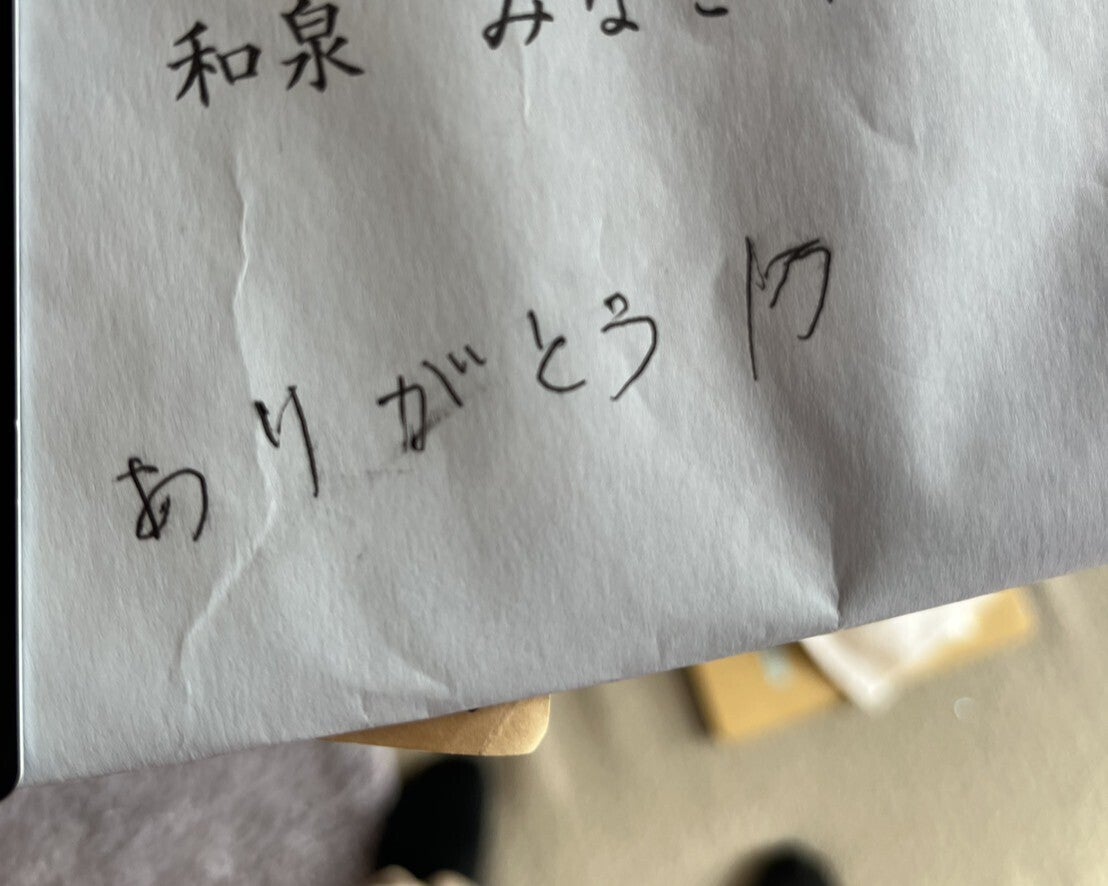 和泉 みな
ありがとう